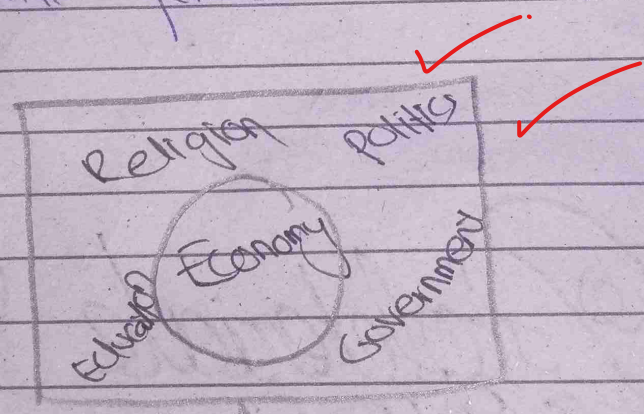 Religion
Politics
Economy
Education
Government